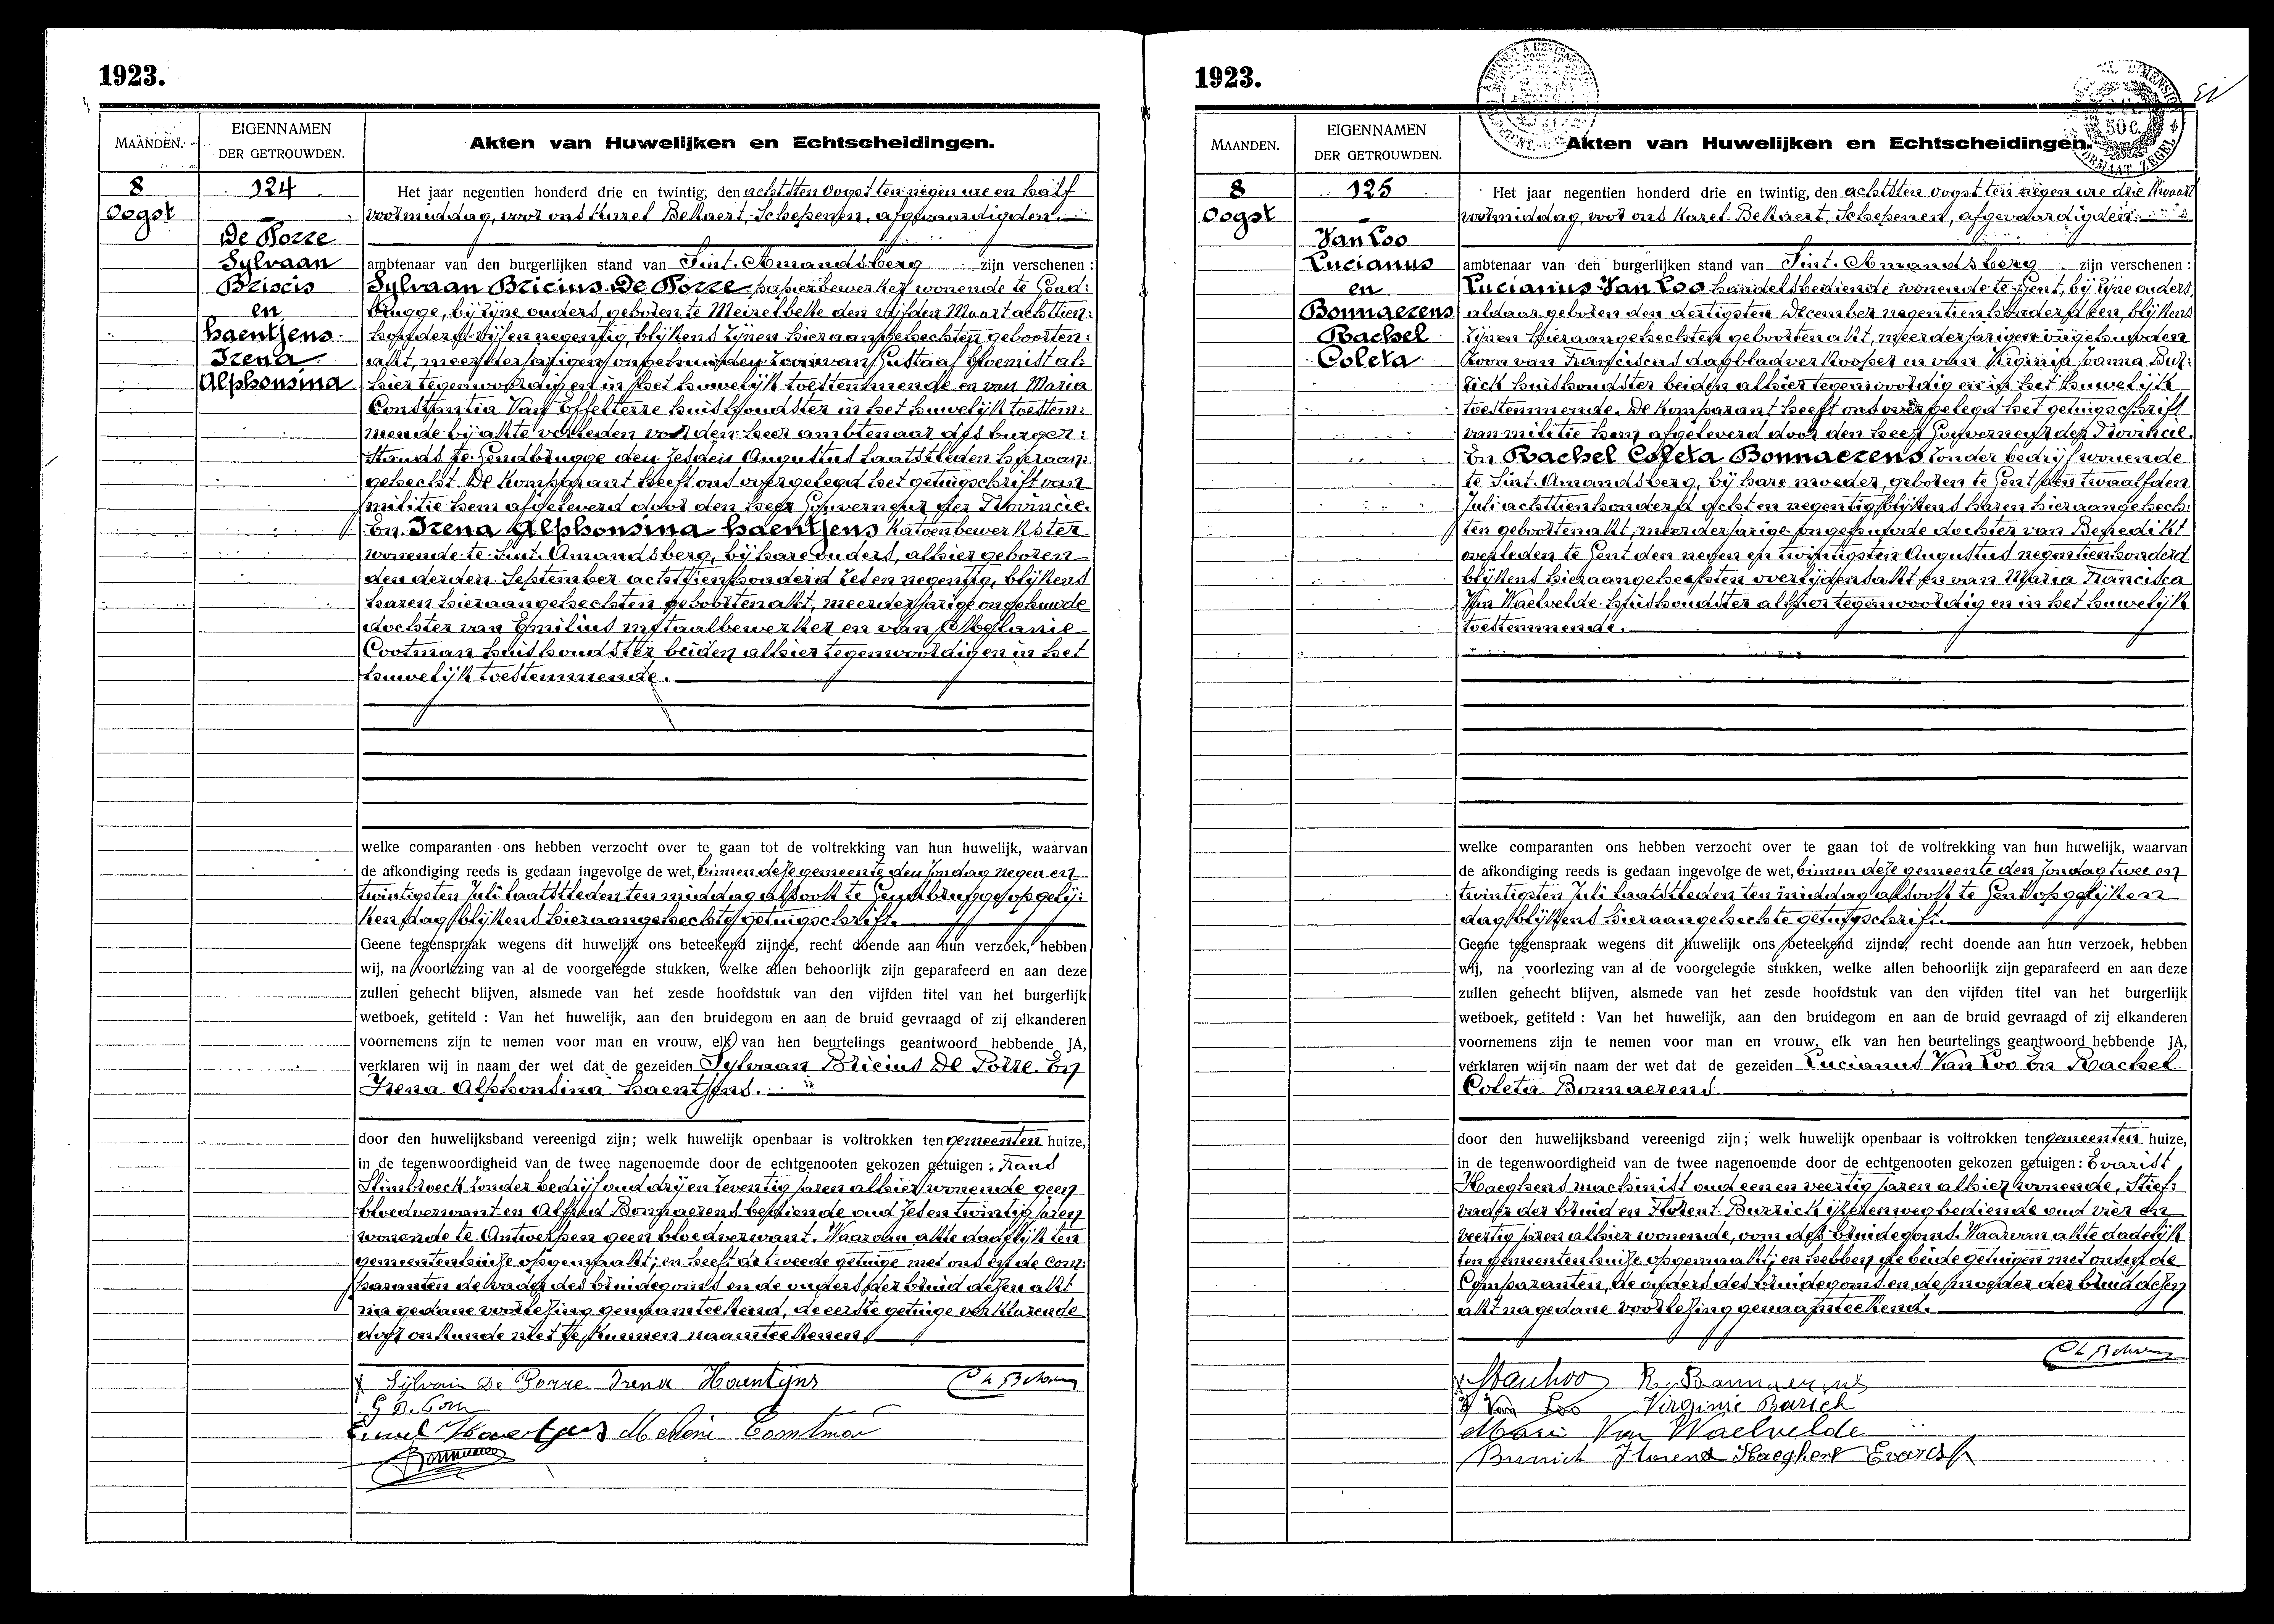 1923.
MAANDEN.
EIGENNAMEN
DER GETROUWDEN.
Akten van Huwelijken en Echtscheidingen.
8
Oogst
124
De Porre
Sylvaan
Briscis
en
Haentjens
Irena
Alphonsina
Het jaar negentien honderd drie en twintig, den achtsten Oogst ten negen ure en half
voormiddag, voor ons Karel Bellaert, Schepenen, afgevaardigden
ambtenaar van den burgerlijken stand van Sint. Amandsberg zijn verschenen :
Sylvaan Bricius De Porre papierbewerker wonende te Gend:
brugge, bij zijne ouders, geboren te Meirelbeke den vijfden Maart achttien:
honderd vijf en negentig, blijkens zijnen hieraangehechten geboorten:
akt, meerderjarigen ongehuwden zoon van Gustaaf bloemist al:
hier tegenwoordig en in het huwelijk toestemmende en van Maria
Constantia Van Effelterre huishoudster in het huwelijk toestem:
mende bij akte verleden voor den heer ambtenaar des burger:
stands te Gendbrugge den zesden Augustus laatstleden hieraan:
gehecht. De Komparant heeft ons overgelegd het getuigschrift van
militie hem afgeleverd door den heer Gouverneur der Provincie.
En Irena Alphonsina Haentjens katoenbewerkster
wonende te Sint. Amandsberg, bij hare ouders, alhier geboren
den derden September achttienhonderd zes en negentig, blijkens
haren hieraangehechten geboortenakt, meerderjarige ongehuwde
dochter van Emilius metaalbewerker en van Melanie
Cootman huishoudster beiden alhier tegenwoordig en in het
huwelijk toestemmende.
welke comparanten ons hebben verzocht over te gaan tot de voltrekking van hun huwelijk, waarvan
de afkondiging reeds is gedaan ingevolge de wet, binnen deze gemeente den Zondag negen en
twintigsten Juli laatstleden ten middag alsook te Gendbrugge op gelij:
ken dag blijkens hieraangehechte getuigschrift.
Geene tegenspraak wegens dit huwelijk ons beteekend zijnde, recht doende aan hun verzoek, hebben
wij, na voorlezing van al de voorgelegde stukken, welke allen behoorlijk zijn geparafeerd en aan deze
zullen gehecht blijven, alsmede van het zesde hoofdstuk van den vijfden titel van het burgerlijk
wetboek, getiteld : Van het huwelijk, aan den bruidegom en aan de bruid gevraagd of zij elkanderen
voornemens zijn te nemen voor man en vrouw, elk van hen beurtelings geantwoord hebbende JA,
verklaren wij in naam der wet dat de gezeiden Sylvaan Bricius De Porre En
Irena Alphonsina Haentjens.
door den huwelijksband vereenigd zijn; welk huwelijk openbaar is voltrokken ten gemeenten huize,
in de tegenwoordigheid van de twee nagenoemde door de echtgenooten gekozen getuigen : Frans
Slimbroeck zonder bedrijf oud drij en zeventig jaren alhier wonende geen
bloedverwant en Alfred Bonnaerens bediende oud zes en twintig jaren
wonende te Antwerpen geen bloedverwant. Waarvan akte dadelijk ten
gemeentenhuize opgemaakt; en heeft de tweede getuige met ons en de com:
paranten de vader des bruidegoms en de ouders der bruid dezen akt
na gedane voorlezing genaamteekend, de eerste getuige verklarende
door onkunde niet te kunnen naamteekenen.
Sylvain De Porre Irena Haentjens
Emiel Haentjens Melanie Cootman
Bonnaerens
1923.
50 c.
MAANDEN.
EIGENNAMEN
DER GETROUWDEN.
Akten van Huwelijken en Echtscheidingen.
8
Oogst
125
Van Loo
Lucianus
en
Bonnaerens
Rachel
Coleta
Het jaar negentien honderd drie en twintig, den achtsten Oogst ten negen ure drie kwaart
voormiddag, voor ons Karel Bellaert, Schepenen, afgevaardigden
ambtenaar van den burgerlijken stand van Sint. Amandsberg zijn verschenen :
Lucianus Van Loo handelsbediende wonende te Gent, bij zijne ouders,
aldaar geboren den dertigsten December negentienhonderd een, blijkens
zijnen hieraangehechten geboortenakt, meerderjarigen ongehuwden
zoon van Franciscus dagbladverkooper en van Virginia Joanna Bur:
rick huishoudster beiden alhier tegenwoordig en in het huwelijk
toestemmende. De Komparant heeft ons overgelegd het getuigschrift
van militie hem afgeleverd door den heer Gouverneur der Provincie.
En Rachel Coleta Bonnaerens zonder bedrijf wonende
te Sint. Amandsberg, bij hare moeder, geboren te Gent den twaalfden
Juli achttienhonderd acht en negentig blijkens haren hieraangehech:
ten geboortenakt, meerderjarige ongehuwde dochter van Benedikt
overleden te Gent den negen en twintigsten Augustus negentienhonderd
blijkens hieraangehechten overlijdensakt en van Maria Francisca
Van Waelvelde huishoudster alhier tegenwoordig en in het huwelijk
toestemmende.
welke comparanten ons hebben verzocht over te gaan tot de voltrekking van hun huwelijk, waarvan
de afkondiging reeds is gedaan ingevolge de wet, binnen deze gemeente den Zondag twee en
twintigsten Juli laatstleden ten middag alsook te Gent op gelijken
dag blijkens hieraangehechte getuigschrift.
Geene tegenspraak wegens dit huwelijk ons beteekend zijnde, recht doende aan hun verzoek, hebben
wij, na voorlezing van al de voorgelegde stukken, welke allen behoorlijk zijn geparafeerd en aan deze
zullen gehecht blijven, alsmede van het zesde hoofdstuk van den vijfden titel van het burgerlijk
wetboek, getiteld : Van het huwelijk, aan den bruidegom en aan de bruid gevraagd of zij elkanderen
voornemens zijn te nemen voor man en vrouw, elk van hen beurtelings geantwoord hebbende JA,
verklaren wij in naam der wet dat de gezeiden Lucianus Van Loo En Rachel
Coleta Bonnaerens.
door den huwelijksband vereenigd zijn; welk huwelijk openbaar is voltrokken ten gemeenten huize,
in de tegenwoordigheid van de twee nagenoemde door de echtgenooten gekozen getuigen : Evarist
Haeghens machinist oud een en veertig jaren alhier wonende, Stief:
vader der bruid en Florent Burrick ijzerenweg bediende oud vier en
veertig jaren alhier wonende, oom des bruidegoms. Waarvan akte dadelijk
ten gemeentenhuize opgemaakt; en hebben de beide getuigen met ons en de
Comparanten, de ouders des bruidegoms en de moeder der bruid dezen
akt na gedane voorlezing genaamteekend.
Van Loo R. Bonnaerens
Van Loo Virginie Burick
Marie Van Waelvelde
Burrick Florent Haeghens Evarist